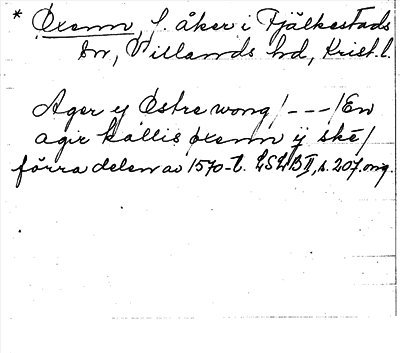 * Øxenn, f. åker i Fjälkestads
sn, Villands hd, Krist. l.
Ager ij Østre wong / - - - / En
agir kallis øxenn ij ske /
förra delen av 1570-t. LSLB II, s. 207. orig.